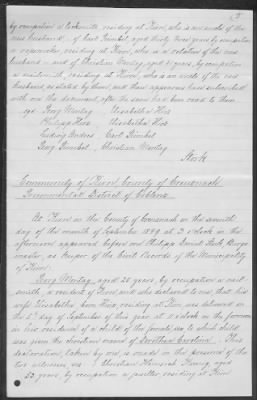 by occupation a locksmith residing at Kirn, who is an uncle of the
new husband, of Carl Kunkel, aged thirty three years by occupation
a ropemaker, residing at Kirn, who is a relation of the new
husband and of Christian Wontag, aged years, by occupation
a nailsmith, residing at Kirn, who is an uncle of the new
husband, as stated by them, and these appearers have subscribed
with me this document, after the same has been read to them
sgd Georg Wontag Elisabetha Herz
Philipp Herz Elisabetha Herz
Ludwig Andres Carl Kunkel
Georg Kunkel Christian Wontag
Stork
Community of Kirn County of Creuznach
Governmental District of Coblenz
At Kirn in the County of Creuznach on the seventh
day of the month of September 1849 at 3 o'clock in the
afternoon appeared before me Philipp Daniel Stork, Burgo-
master, as keeper of the Civil Records of the Municipality
of Kirn:
Georg Wontag, aged 28 years, by occupation a nail-
smith, a resident of Kirn and who declared to me that his
wife Elisabetha born Herz residing at Kirn was delivered on
the 5th day of September of this year at 11 o'clock in the forenoon
in his residence of a child of the female sex to which child
was given the christian names of Dorothea Carolina. This
declaration, taken by me, is made in the presence of the
two witnesses viz: Christian Heinrich aged
53 years, by occupation a residing at Kirn